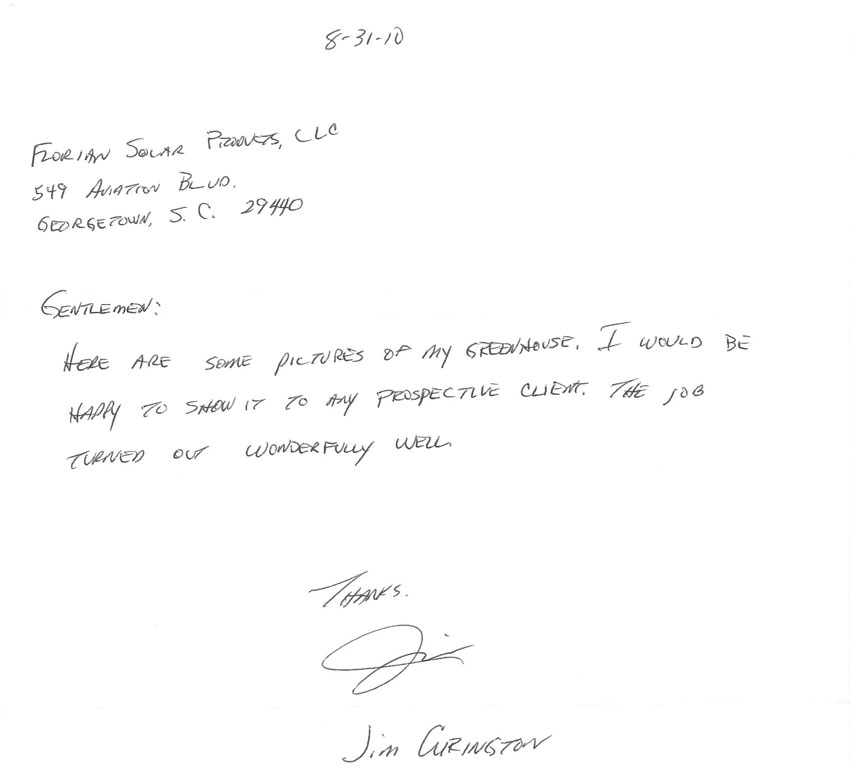 8-31-10
FLORIAN SOLAR PRODUCTS, LLC
549 AVIATION BLVD.
GEORGETOWN, S. C. 29440
GENTLEMEN:
HERE ARE SOME PICTURES OF MY GREENHOUSE. I WOULD BE
HAPPY TO SHOW IT TO ANY PROSPECTIVE CLIENT. THE JOB
TURNED OUT WONDERFULLY WELL.
THANKS.
Jim
Jim CURINGTON